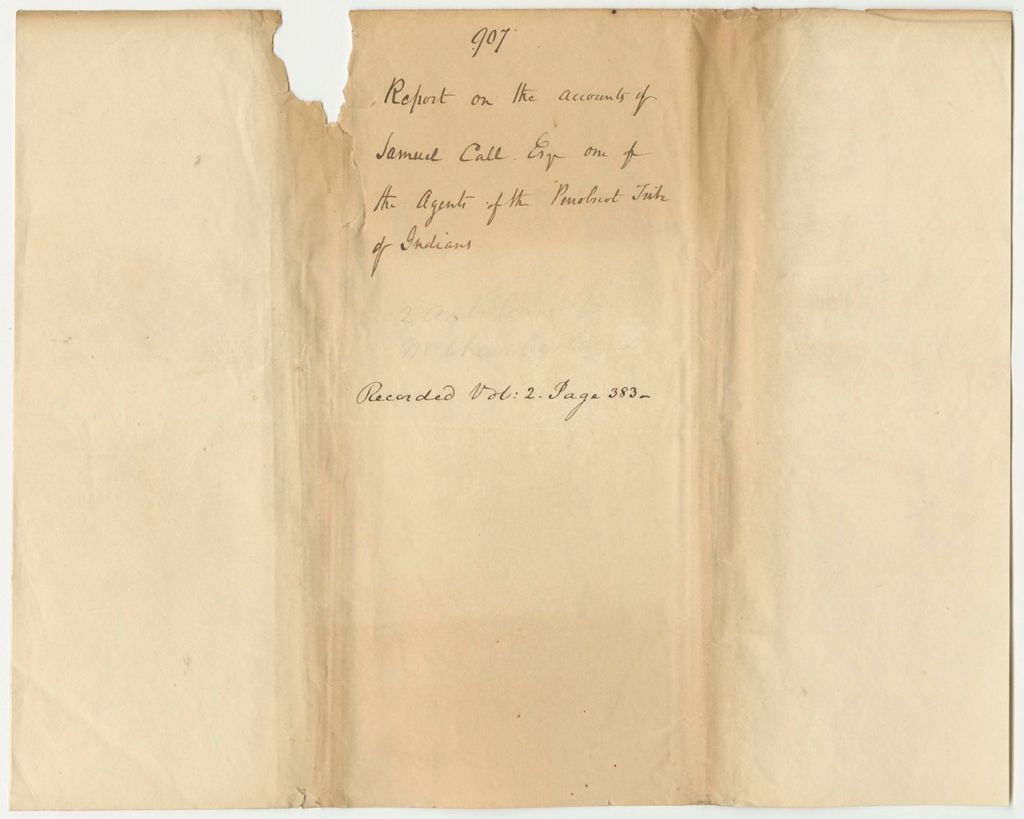 907
Report on the accounts of
Samuel Call Esqr one of
the Agents of the Penobscot Tribe
of Indians
Recorded Vol: 2. Page 383-